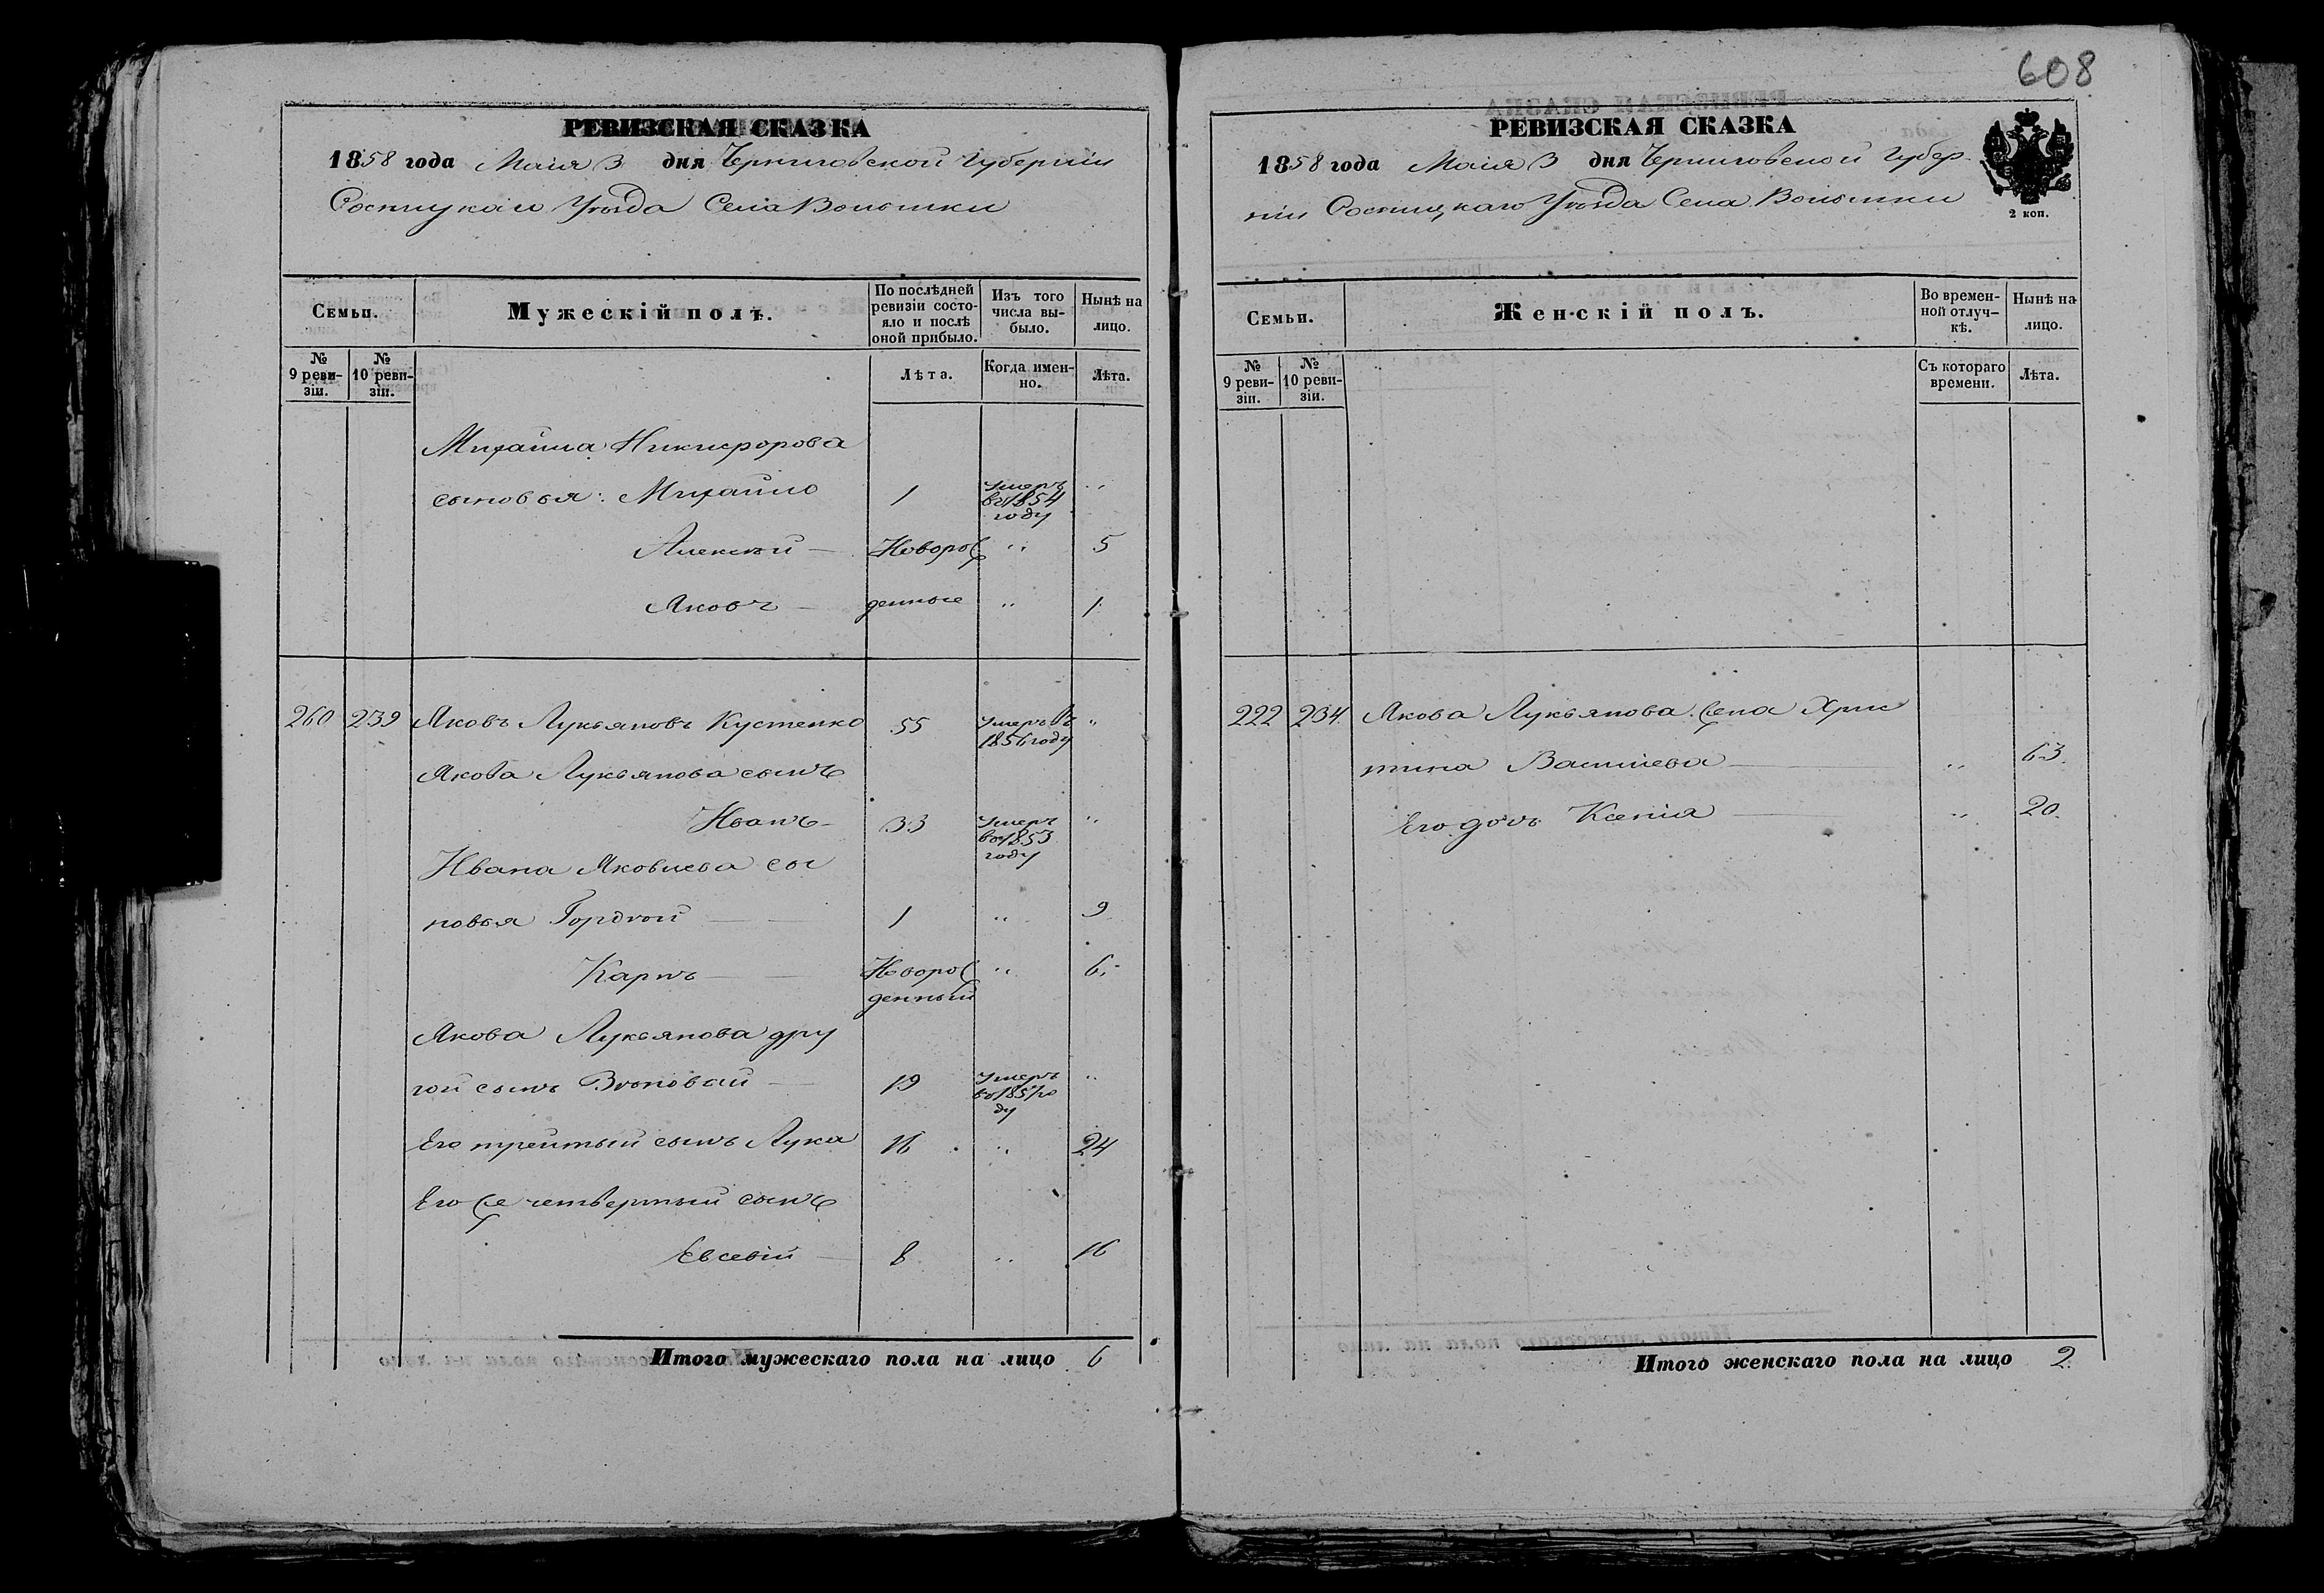 608
РЕВИЗСКАЯ СКАЗКА
1858 года Маія 3 дня Черниговской Губерніи
Сосницкаго Уѣзда Села Волынки
Семьи.
Мужескій полъ.
По послѣдней ревизіи состояло и послѣ оной прибыло.
Изъ того числа выбыло.
Нынѣ на лицо.
№ 9 ревизіи.
№ 10 ревизіи.
Лѣта.
Когда именно.
Лѣта.
Михайла Никифорова
сыновья: Михайло 1 умеръ въ 1854 году "
Алексѣй — Новорож " 5
Яковъ — денные " 1
260 239 Яковъ Лукьяновъ Кустенко 55 умеръ въ 1856 году "
Якова Лукьянова сынъ
Иванъ — 33 умеръ въ 1853 году "
Ивана Яковлева сы
новья Гордѣй — 1 " 9
Карпъ — Новорож " 6
денный
Якова Лукьянова дру
гой сынъ — 19 умеръ "
Его третый сынъ Лука 16 " 24
Его же четвертый сынъ
Евсевій — 8 " 16
Итого мужескаго пола на лицо 6
РЕВИЗСКАЯ СКАЗКА
1858 года Маія 3 дня Черниговской Губер-
ніи Сосницкаго Уѣзда Села Волынки
2 коп.
Семьи.
Женскій полъ.
Во временной отлучкѣ.
Нынѣ на лицо.
№ 9 ревизіи.
№ 10 ревизіи.
Съ котораго времени.
Лѣта.
222 234 Якова Лукьянова жена Хрис
тина Васильева — " 63.
Его дочь Ксенія — " 20.
Итого женскаго пола на лицо 2.